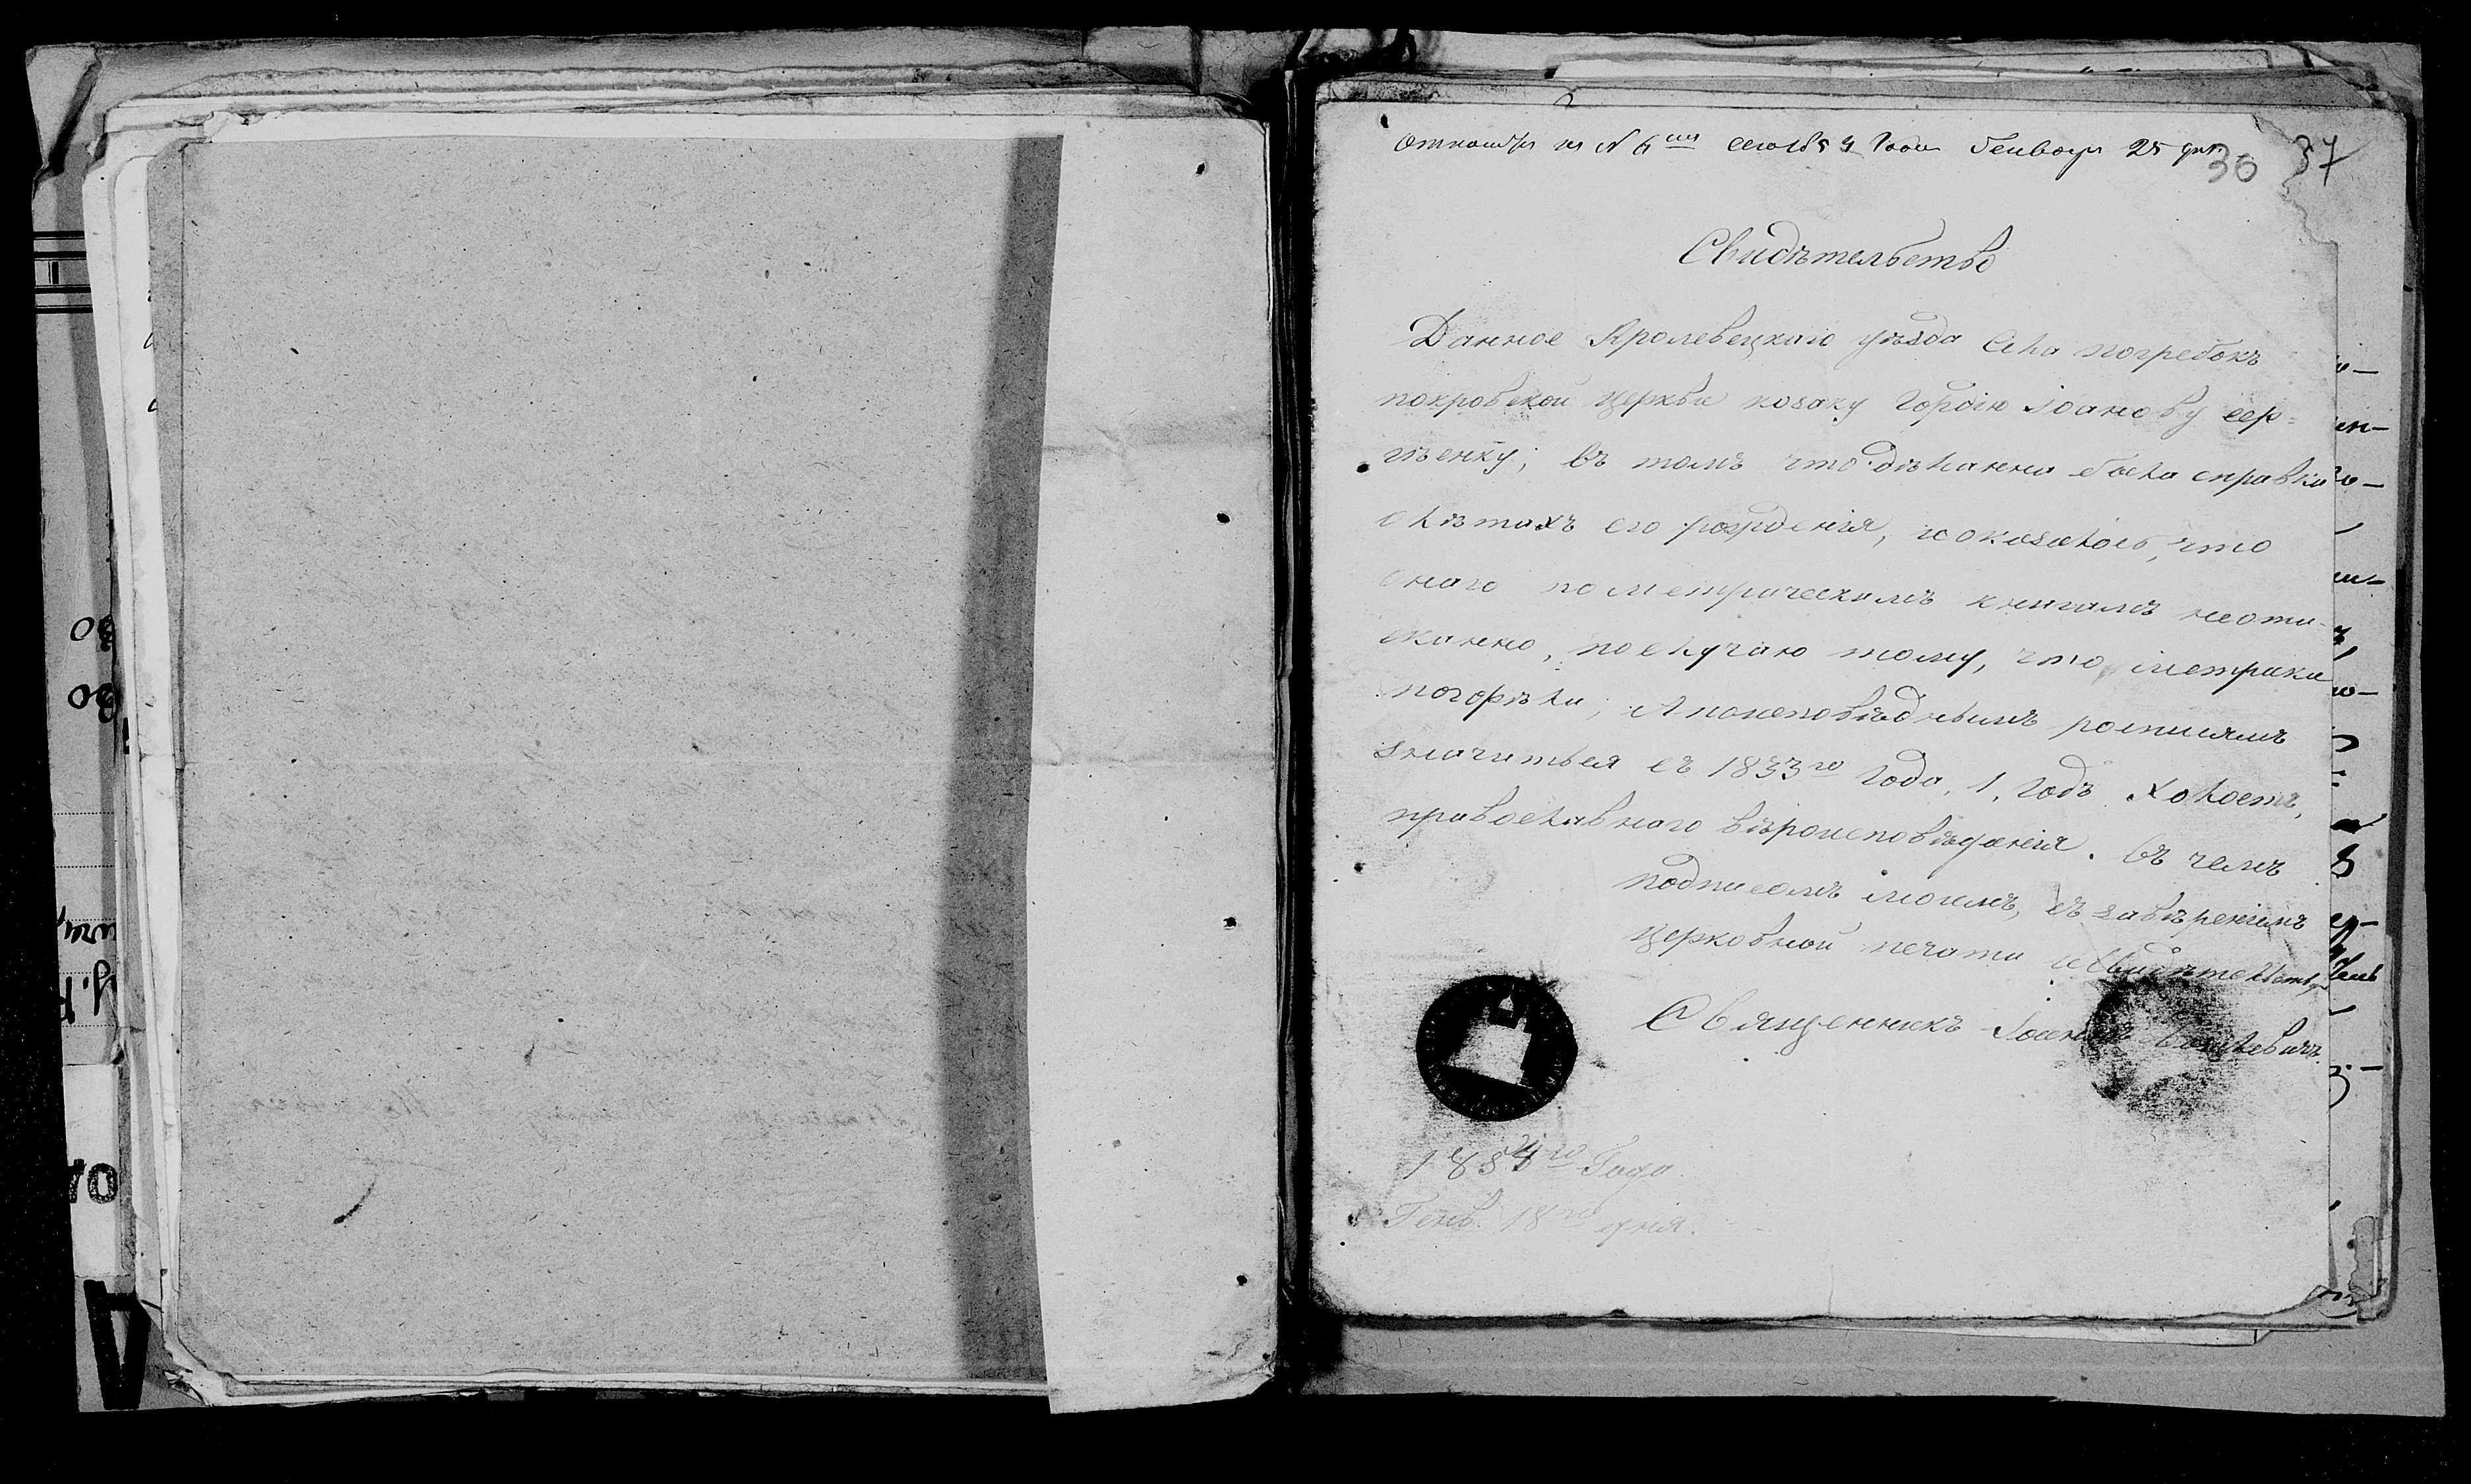 к № 6му сего 1854 года Генваря 25 дня.
30 37
Свидѣтельство
Данное Кролевецкаго уѣзда села погребокъ
покровской церкви козаку Гордію Іоанову сер=
гѣенку; въ томъ что дѣланна была справка
о лѣтахъ его рождения, и оказалось, что
онаго по метрическимъ книгамъ неоты-
сканно, послучаю тому, что метрики
погорѣли; А поисповѣднымъ росписямъ
значиться съ 1833го года, 1. годъ. Холостъ,
православного вѣроисповѣдания. Въ чемъ
подписомъ моимъ, съ завѣрениемъ
церковной печати свидѣтельствую
Священникъ Іоаннъ
1854го Года
Генв. 18го дня.